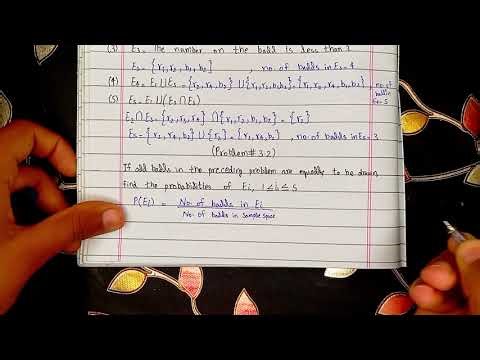 (3) E₃ = The number on the ball is less than 3
E₃ = {r₁, r₂, b₁, b₂} , no. of balls in E₃ = 4
(4) E₄ = E₁ ∪ E₃ = {r₂, r₄, b₂} ∪ {r₁, r₂, b₁, b₂} = {r₁, r₂, r₄, b₁, b₂} no. of balls E₄ = 5
(5) E₅ = E₁ ∪ (E₂ ∩ E₃)
E₂ ∩ E₃ = {r₂, r₃, r₄} ∩ {r₁, r₂, b₁, b₂} = {r₂}
E₅ = {r₂, r₄, b₂} ∪ {r₂} = {r₂, r₄, b₂} , no. of balls in E₅ = 3
(Problem # 3.2)
If all balls in the preceding problem are equally to be drawn
find the probabilities of Ei, 1 ≤ i ≤ 5
P(Ei) = No. of balls in Ei
No. of balls in sample space